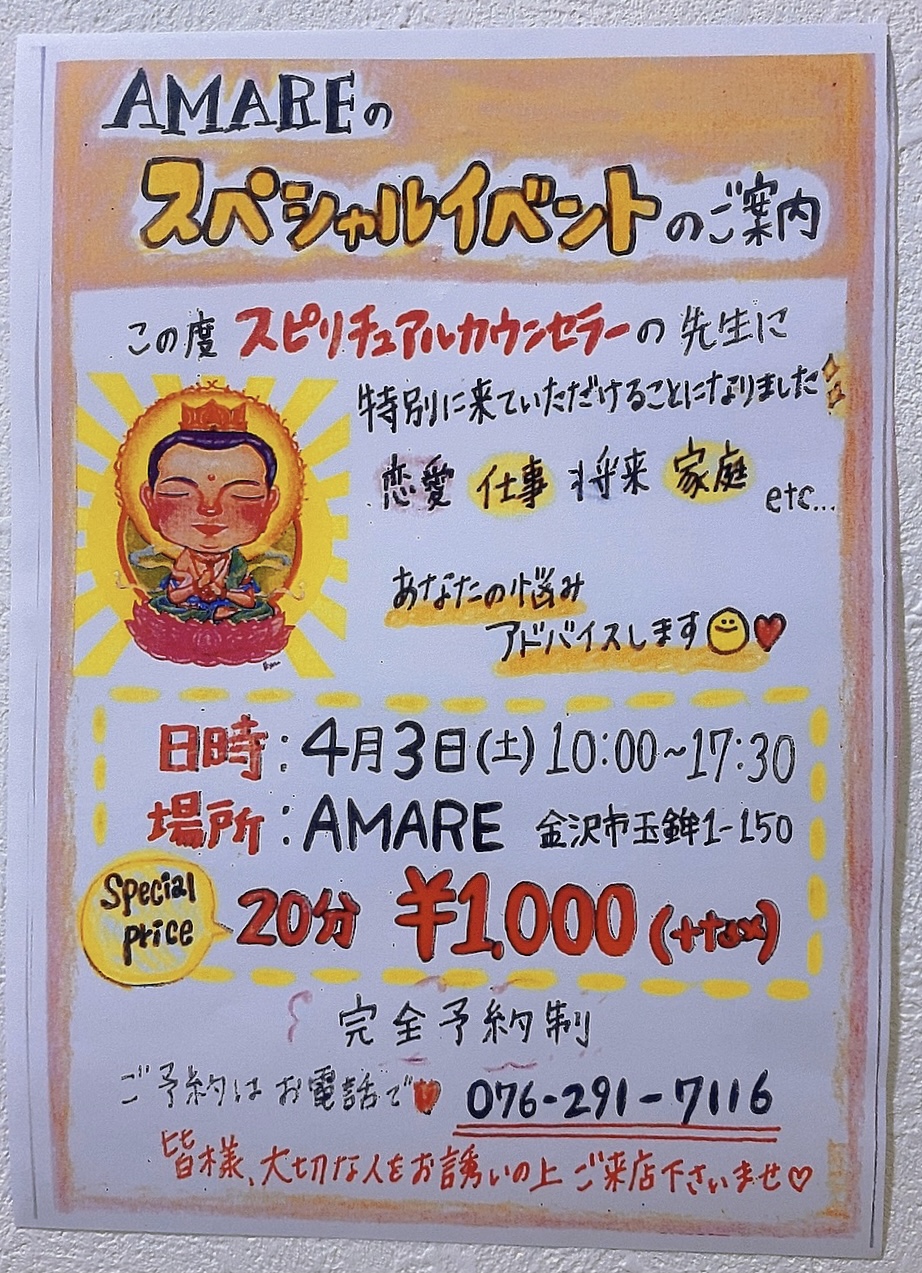 AMAREの
スペシャルイベントのご案内
この度 スピリチュアルカウンセラーの 先生に
特別に来ていただけることになりました
恋愛 仕事 将来 家庭 etc...
あなたの悩み
アドバイスします
日時:4月3日(土)10:00~17:30
場所:AMARE 金沢市玉鉾1-150
Special
price
20分 ¥1,000(+tax)
完全予約制
ご予約は お電話で 076-291-7116
皆様、大切な人をお誘いの上 ご来店下さいませ♡